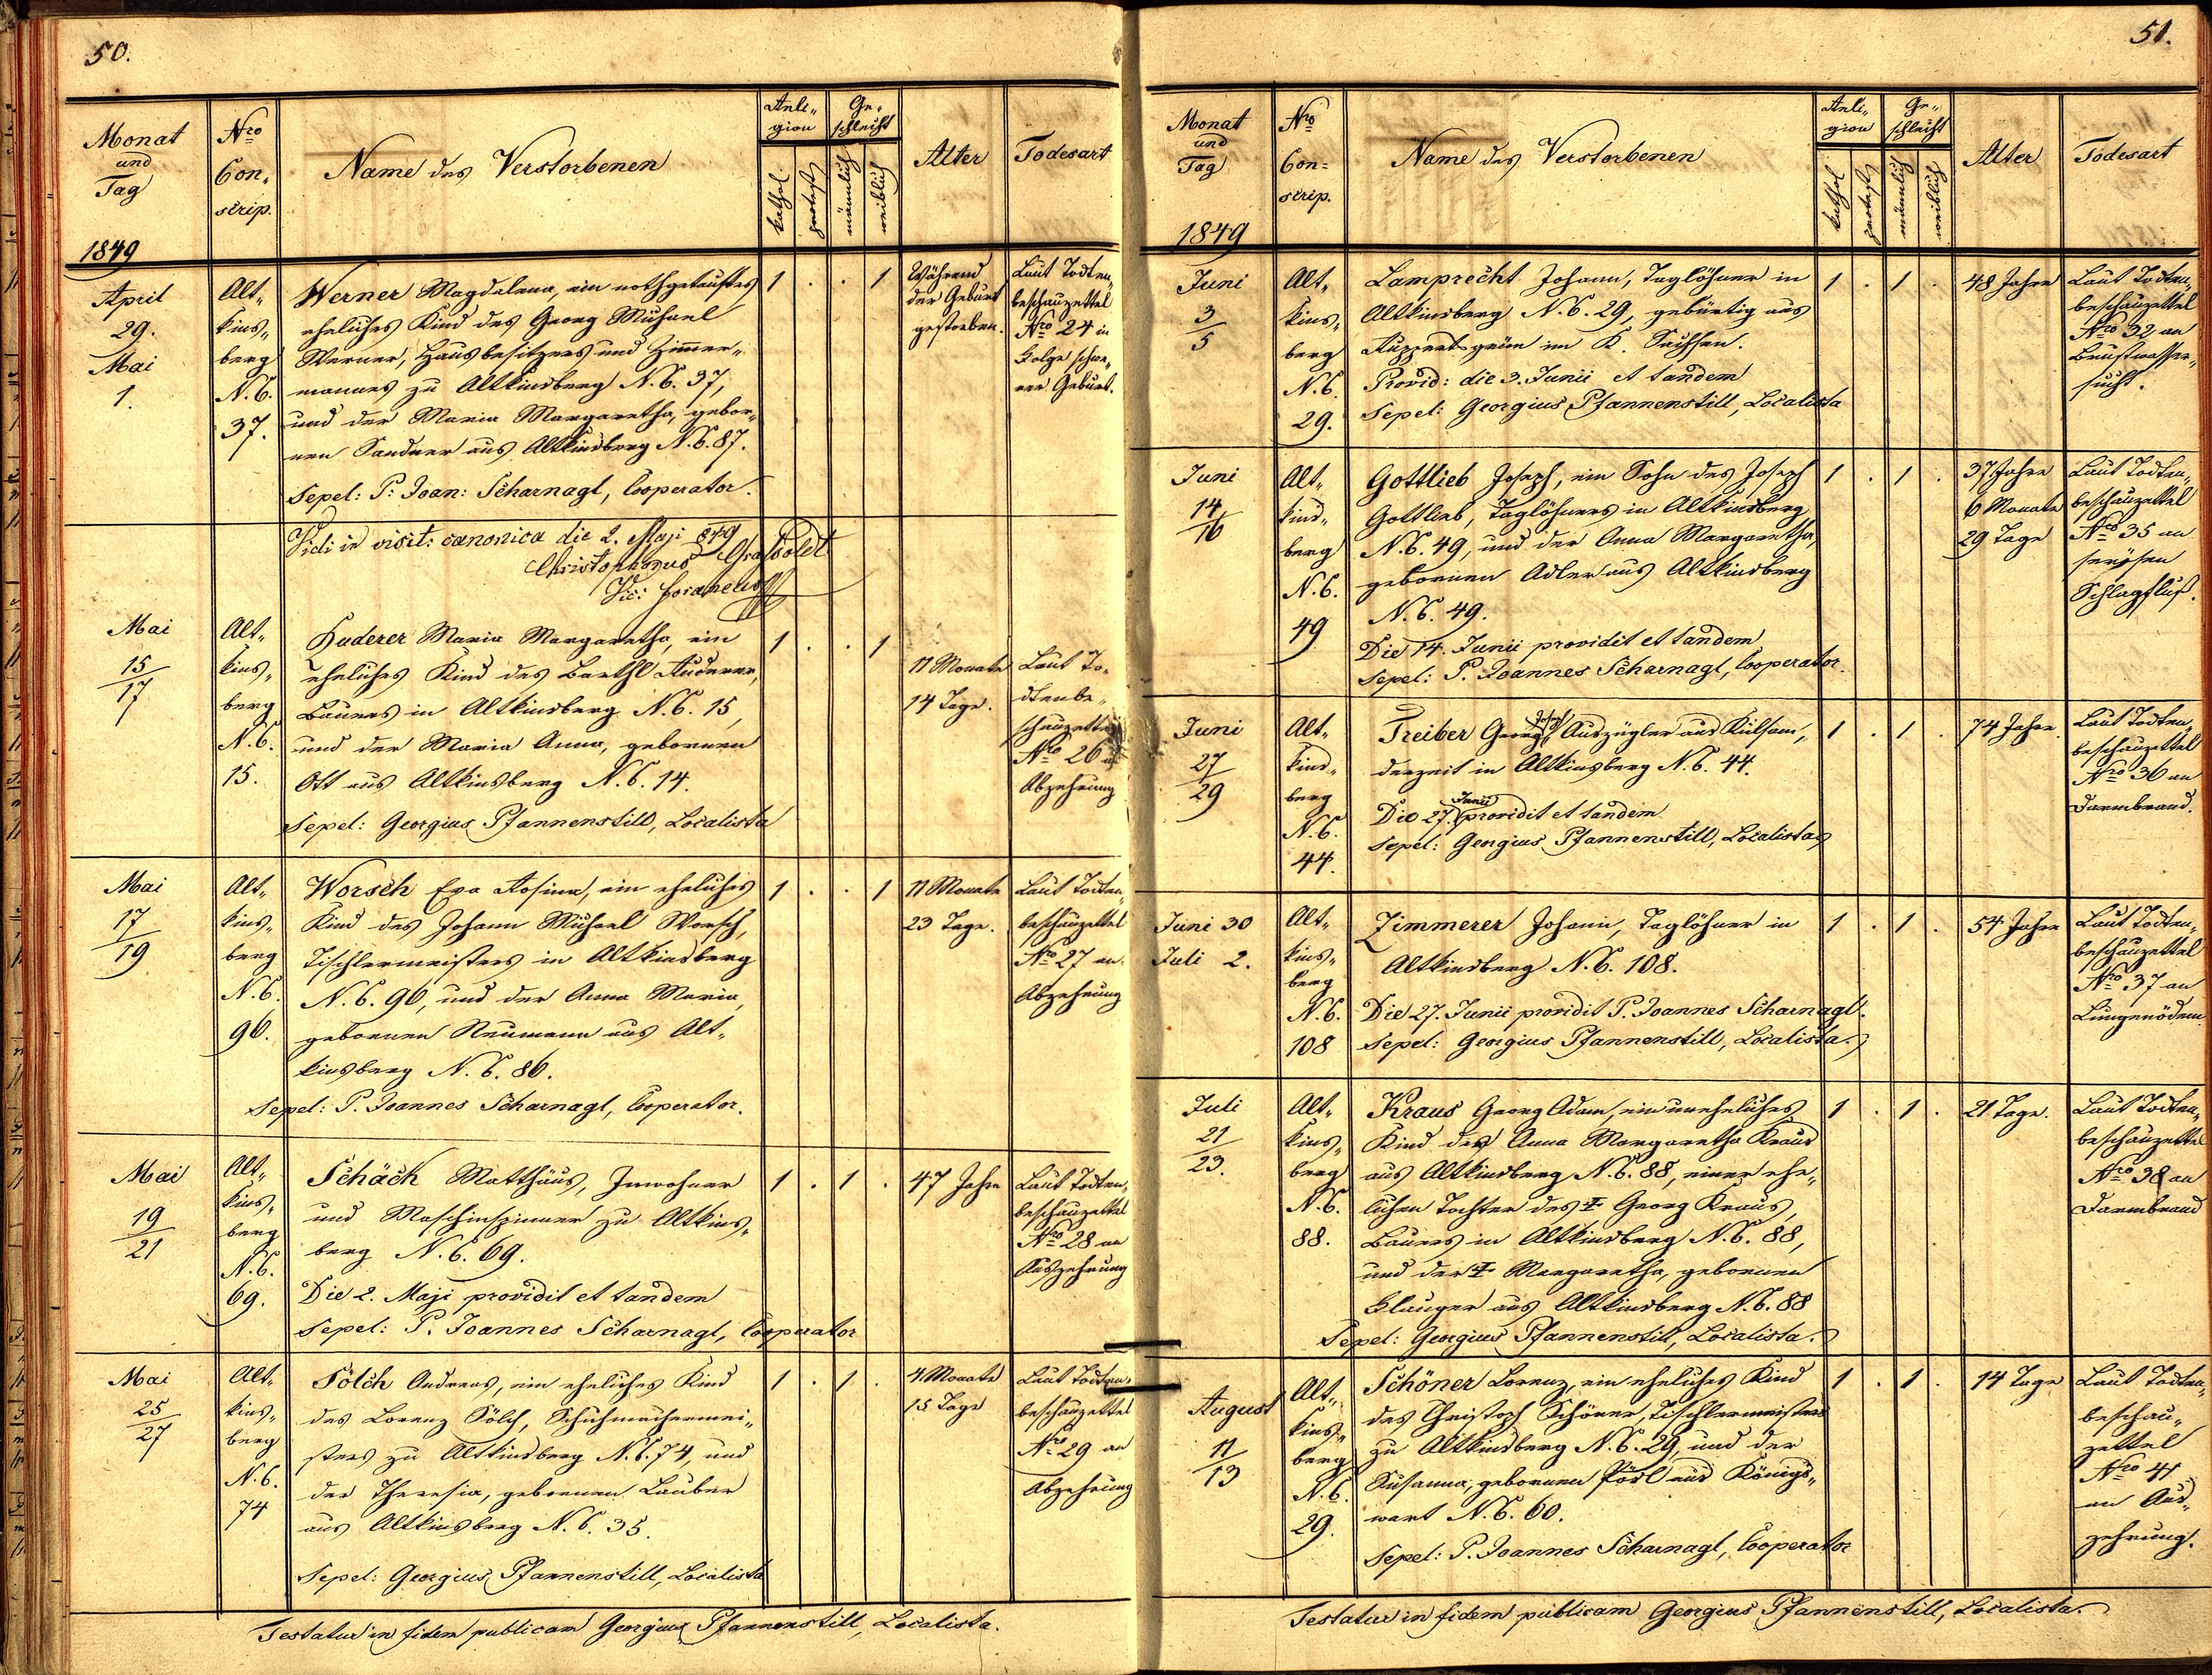 50.
Monat
und
Tag
1849
Nro
Con-
scrip.
Name des Verstorbenen
Reli-
gion
kathol
protest
Ge-
schlecht
männlich
weiblich
Alter
Todesart
April
29.
Mai
1.
Alt-
kins-
berg
N.C.
37.
Werner Magdalena, ein nothgetauftes
eheliches Kind des Georg Michael
Werner, Hausbesitzers und Zimmer-
mannes zu Altkinsberg N.C. 37,
und der Maria Margaretha, gebor-
nen Sandner aus Altkinsberg N.C. 87.
Sepel: P: Joan: Scharnagl, Cooperator.
1 . . 1
Während
der Geburt
gestorben.
Laut Todten-
beschauzettel
Nro 24 in
Folge schwe-
rer Geburt.
Vidi in visit: canonica die 2. Maji 849
Christophorus Grassoldt
Vic: foraneus
Mai
15
17
Alt-
kins-
berg
N.C.
15.
Ruderer Maria Margaretha, ein
eheliches Kind des Barthl Ruderer,
Bauers in Altkinsberg N.C. 15,
und der Maria Anna, gebornen
Ott aus Altkinsberg N.C. 14.
Sepel: Georgius Pfannenstill, Localista
1 . . 1
11 Monate
14 Tage.
Laut To-
dtenbe-
schauzettel
Nro 26 an
Abzehrung
Mai
17
19
Alt-
kins-
berg
N.C.
96.
Worsch Eva Rosina, ein eheliches
Kind des Johann Michael Worsch,
Tischlermeisters in Altkinsberg
N.C. 96, und der Anna Maria,
gebornen Neumann aus Alt-
kinsberg N.C. 86.
Sepel: P. Joannes Scharnagl, Cooperator.
1 . . 1
11 Monate
23 Tage.
Laut Todten-
beschauzettel
Nro 27 an
Abzehrung
Mai
19
21
Alt-
kins-
berg
N.C.
69.
Schäck Matthäus, Inwohner
und Maschinspinner zu Altkins-
berg N.C. 69.
Die 2. Maji providit et tandem
Sepel: P. Joannes Scharnagl, Cooperator
1 . 1 .
47 Jahre
Laut Todten-
beschauzettel
Nro 28 an
Auszehrung
Mai
25
27
Alt-
kins-
berg
N.C.
74
Sölch Andreas, ein eheliches Kind
des Lorenz Sölch, Schuhmachermei-
sters zu Altkinsberg N.C. 74, und
der Theresia, gebornen Lauber
aus Altkinsberg N.C. 35.
Sepel: Georgius Pfannenstill, Localista
1 . 1 .
4 Monate
15 Tage
Laut Todten-
beschauzettel
Nro 29 an
Abzehrung
Testatur in fidem publicam Georgius Pfannenstill, Localista.
51.
Monat
und
Tag
1849
Nro
Con-
scrip.
Name des Verstorbenen
Reli-
gion
kathol
protest
Ge-
schlecht
männlich
weiblich
Alter
Todesart
Juni
3
5
Alt-
kins-
berg
N.C.
29.
Lamprecht Johann, Taglöhner in
Altkinsberg N.C. 29, gebürtig aus
Ruppertsgrün im K. Sachsen.
Provid: die 3. Junii et tandem
Sepel: Georgius Pfannenstill, Localista
1 . 1 .
48 Jahre
Laut Todten-
beschauzettel
Nro 32 an
Brustwasser-
sucht.
Juni
14
16
Alt-
kins-
berg
N.C.
49
Gottlieb Joseph, ein Sohn des Joseph
Gottlieb, Taglöhners in Altkinsberg
N.C. 49, und der Anna Margaretha,
gebornen Adler aus Altkinsberg
N.C. 49.
Die 14. Junii providit et tandem
Sepel: P. Joannes Scharnagl, Cooperator.
1 . 1 .
37 Jahre
6 Monate
29 Tage
Laut Todten-
beschauzettel
Nro 35 an
serösen
Schlagfluß.
Juni
27
29
Alt-
kins-
berg
N.C.
44.
Treiber Georg Joseph Auszügler aus Kulsam,
derzeit in Altkinsberg N.C. 44.
Die 27. Junii providit et tandem
Sepel: Georgius Pfannenstill, Localista
1 . 1 .
74 Jahre
Laut Todten-
beschauzettel
Nro 36 an
Darmbrand.
Juni 30
Juli 2.
Alt-
kins-
berg
N.C.
108
Zimmerer Johann, Taglöhner in
Altkinsberg N.C. 108.
Die 27. Junii providit P. Joannes Scharnagl.
Sepel: Georgius Pfannenstill, Localista.
1 . 1 .
54 Jahre
Laut Todten-
beschauzettel
Nro 37 an
Lungenödem
Juli
21
23.
Alt-
kins-
berg
N.C.
88.
Kraus Georg Adam, ein uneheliches
Kind der Anna Margaretha Kraus
aus Altkinsberg N.C. 88, einer ehe-
lichen Tochter des † Georg Kraus,
Bauers in Altkinsberg N.C. 88,
und der † Margaretha, gebornen
Slauger aus Altkinsberg N.C. 88
Sepel: Georgius Pfannenstill, Localista.
1 . 1 .
21 Tage.
Laut Todten-
beschauzettel
Nro 38 an
Darmbrand
August
11
13
Alt-
kins-
berg
N.C.
29.
Schöner Lorenz, ein eheliches Kind
des Christoph Schöner, Tischlermeisters
zu Altkinsberg N.C. 29, und der
Susanna, gebornen Pösl aus Königs-
wart N.C. 60.
Sepel: P. Joannes Scharnagl, Cooperator
1 . 1 .
14 Tage
Laut Todten-
beschau-
zettel
Nro 41
an Aus-
zehrung.
Testatur in fidem publicam Georgius Pfannenstill, Localista.